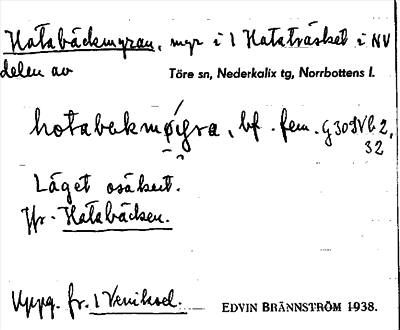 Hatabäckmyran, myr i l Hataträsket i NV
delen av Töre sn, Nederkalix tg, Norrbottens l.
hotabekmøi̯ra, bf. fem. G 30 SV b 2,
32
Läget osäkert.
Jfr. Hatabäcken.
Uppg. fr.
EDVIN BRÄNNSTRÖM 1938.